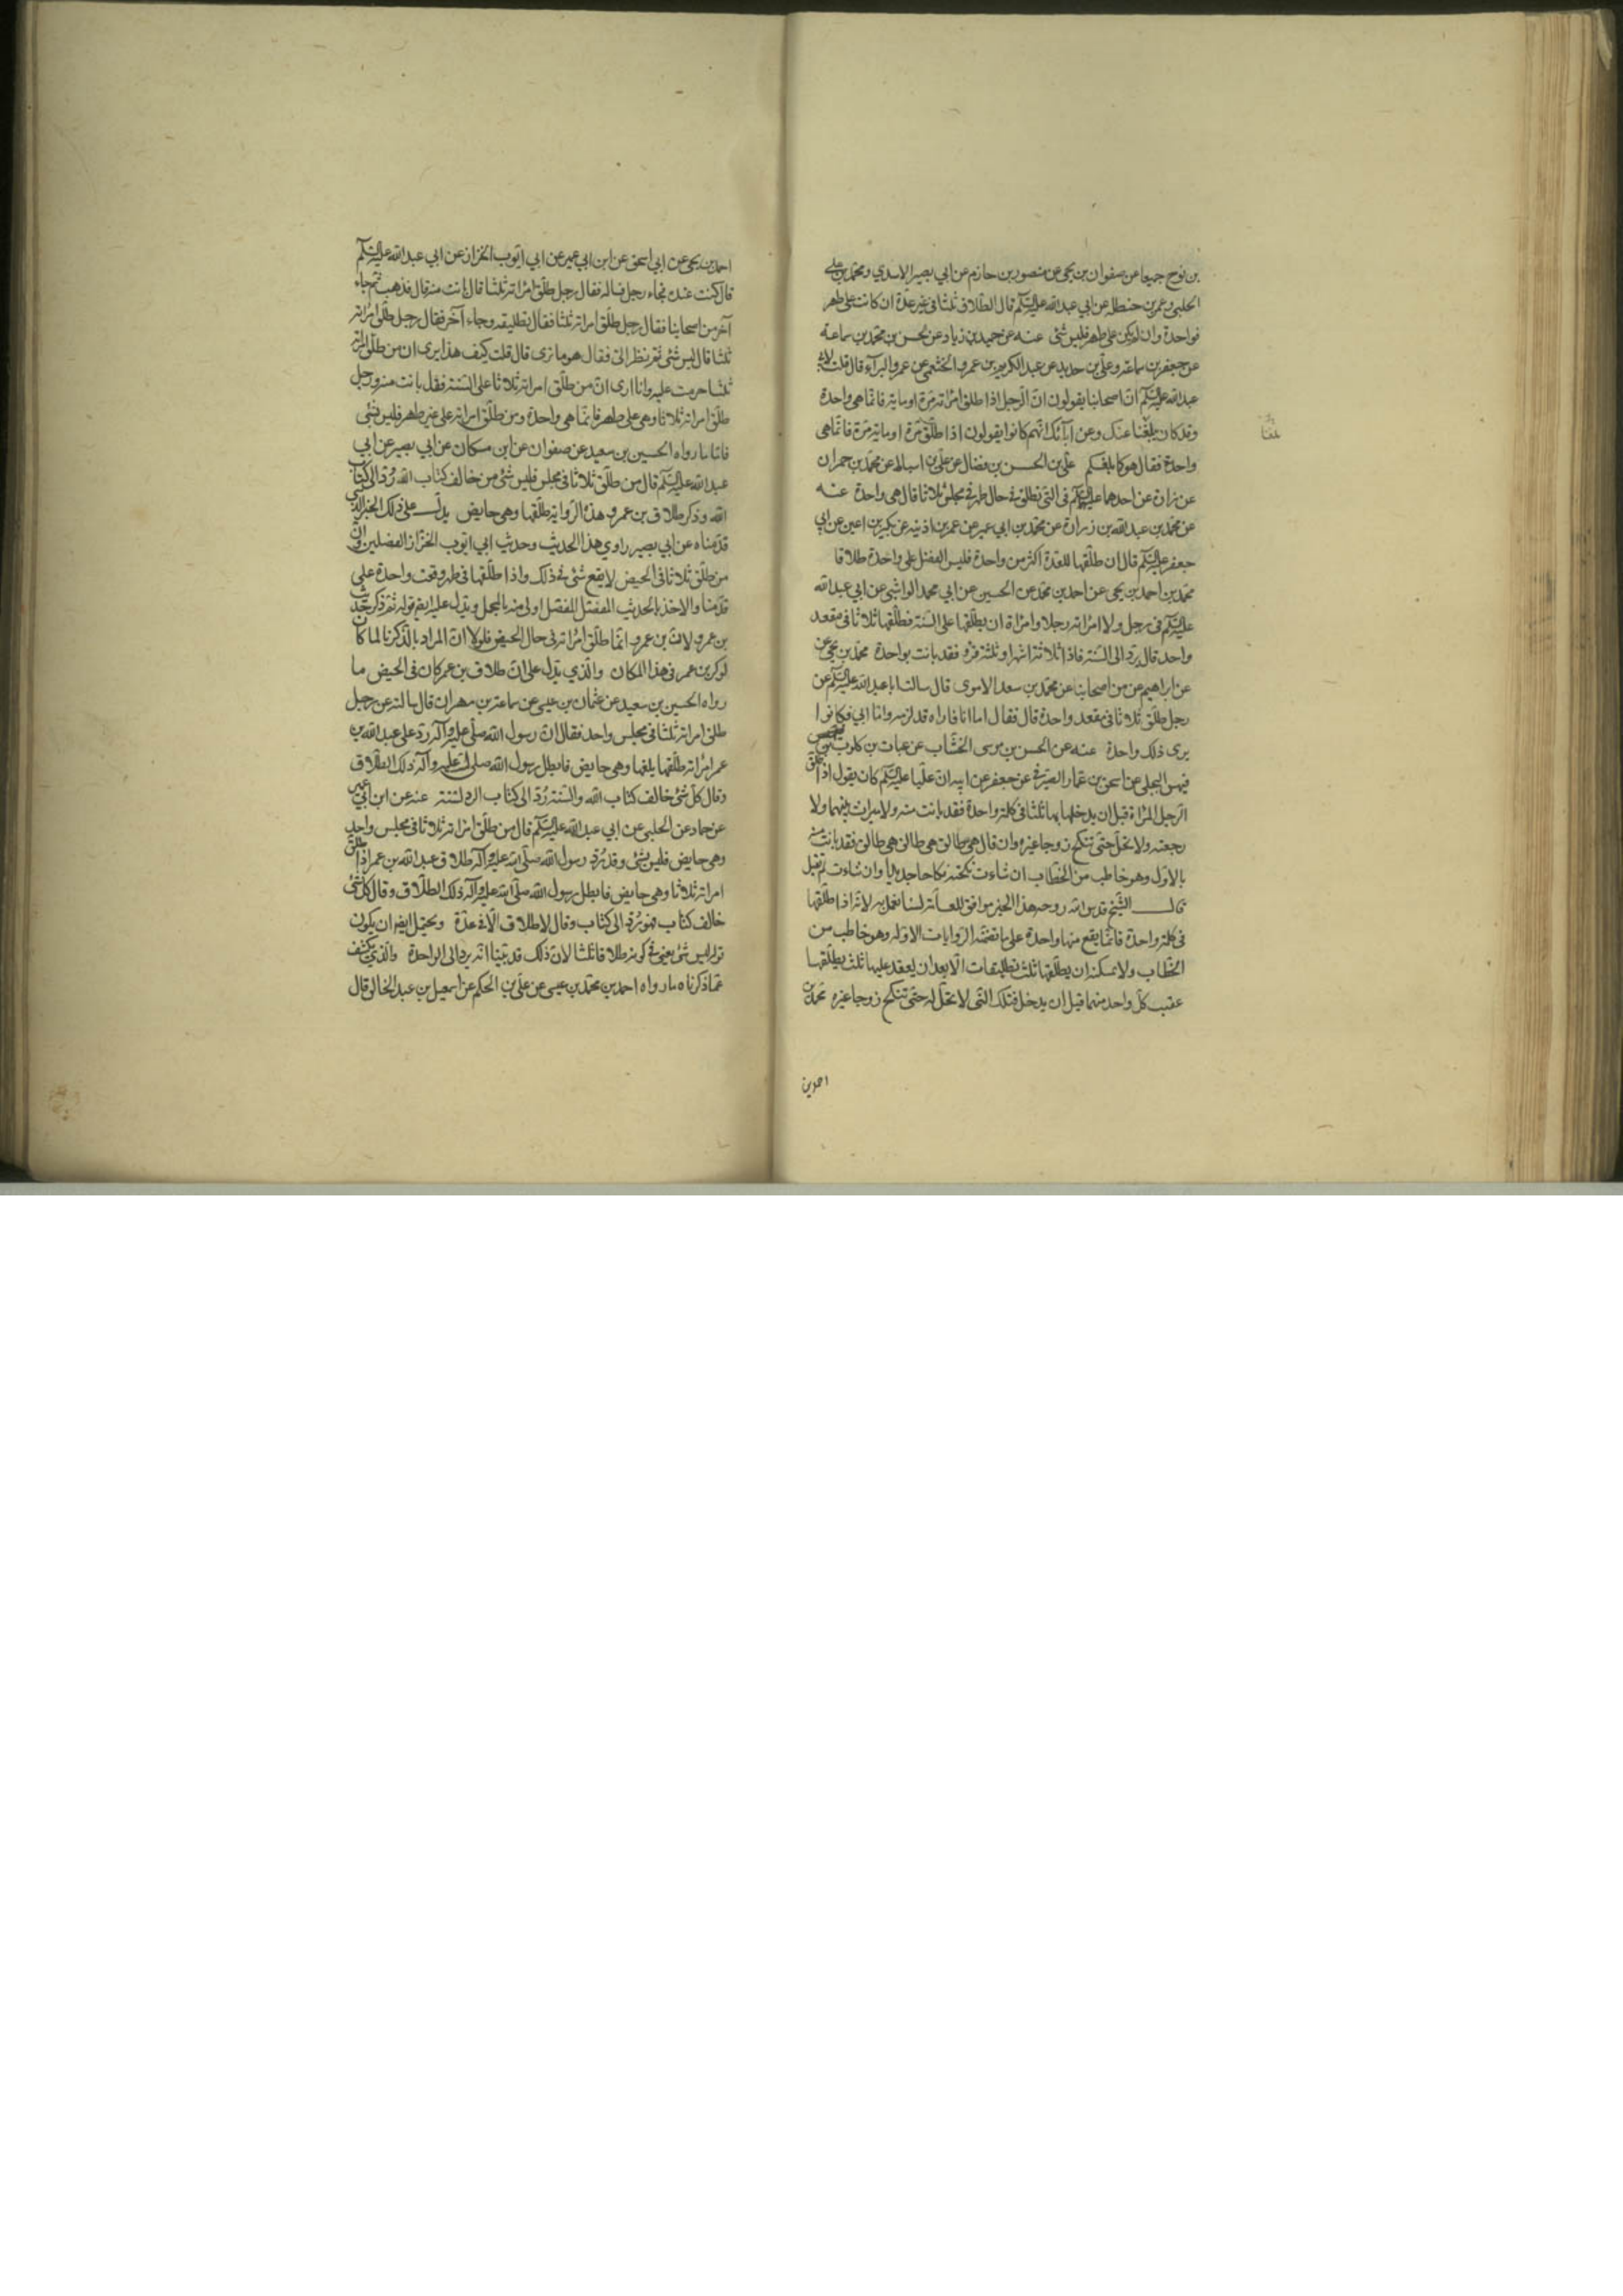 بن نوح جميعا عن صفوان بن يحيى عن منصور بن حازم عن ابي بصير الاسدي ومحمد بن علي
الحلبي وعمر بن حنظله عن ابي عبد الله عليه السلم قال الطلاق ثلثا في غير عدة ان كانت على طهر
فواحدة وان لم يكن على طهر فليس شئ عنه عن حميد بن زياد عن الحسن بن محمد بن سماعة
عن جعفر بن سماعة وعلي بن حديد عن عبد الكريم بن عمرو الخثعمي عن عمرو البراء قال قلت لابي
عبد الله عليه السلم ان اصحابنا يقولون ان الرجل اذا طلق امراته مرة او ماية فانما هي واحدة
وقد كان يبلغنا عنك وعن ابآئك انهم كانوا يقولون اذا طلق مرة او ماية مرة فانما هي
واحدة فقال هو كما بلغكم علي بن الحسن بن فضال عن علي بن اسباط عن محمد بن حمران
عن زرارة عن احدهما عليهما السلم في التي تطلق في حال طهر في مجلس ثلاثا قال هي واحدة عنه
عن محمد بن عبد الله بن زرارة عن محمد بن ابي عمير عن عمر بن اذينه عن بكير بن اعين عن ابي
جعفر عليه السلم قال ان طلقها للعدة اكثر من واحدة فليس الفضل على واحدة طلاقا
محمد بن احمد بن يحيى عن احمد بن محمد عن الحسين عن ابي محمد الوابشي عن ابي عبد الله
عليه السلم في رجل ولا امراته رجلا وامراة ان يطلقها على السنة فطلقها ثلاثا في مقعد
واحد قال يرد الى السنة فاذا ثلاثة اشهر او ثلثة قروء فقد بانت بواحدة محمد بن يحيى عن
عن ابراهيم عن من اصحابنا عن محمد بن سعد الاموي قال سالت ابا عبد الله عليه السلم عن
رجل طلق ثلاثا في مقعد واحدة قال فقال اما انا فاراه قد لزمه واما ابي فكانوا
يرى ذلك واحدة عنه عن الحسن بن موسى الخشاب عن غياث بن كلوب بن فيهس
فيهس البجلي عن اسحق بن عمار الصيرفي عن جعفر عن ابيه ان عليا عليه السلم كان يقول اذا طلق
الرجل المراة قبل ان يدخل بها ثلثا في كلمة واحدة فقد بانت منه ولا ميراث بينهما ولا
رجعة ولا تحل حتى تنكح زوجا غيره وان قال هي طالق هي طالق هي طالق فقد بانت منه
بالاول وهو خاطب من الخطاب ان شاءت نكحته نكاحا جديدا وان شاءت لم تفعل
قال الشيخ قدس الله روحه هذا الخبر موافق للعامة لسنا نعمل به لانه اذا طلقها
في كلمة واحدة فانما يقع منها واحدة على ما تضمنه الروايات الاوله وهو خاطب من
الخطاب ولا يمكنه ان يطلقها ثلث تطليقات الا بعد ان يعقد عليها ثلث يطلقها
عقيب كل واحد منها قبل ان يدخل فتلك التي لا تحل له حتى تنكح زوجا غيره محمد بن
احمد بن
احمد بن يحيى عن ابي اسحق عن ابن ابي عمير عن ابي ايوب الخزاز عن ابي عبد الله عليه السلم
قال كنت عنده فجاء رجل فساله فقال رجل طلق امراته ثلثا قال بانت منه قال فذهب ثم جاء
آخر من اصحابنا فقال رجل طلق امراته ثلثا فقال تطليقه وجاء آخر فقال رجل طلق امراته
ثلثا قال ليس شئ ثم نظر الي فقال هو ما ترى قال قلت كيف هذا يرى ان من طلق امراته
ثلثا حرمت عليه وانا ارى ان من طلق امراته ثلاثا على السنة فقد بانت منه ورجل
طلق امراته ثلاثا وهي على طهر فانما هي واحدة ومن طلق امراته على غير طهر فليس بشئ
فاما ما رواه الحسين بن سعيد عن صفوان عن ابن مسكان عن ابي بصير عن ابي
عبد الله عليه السلم قال من طلق ثلاثا في مجلس فليس شئ من خالف كتاب الله رد الى كتاب
الله وذكر طلاق بن عمرو هذه الرواية طلقها وهي حايض يدل على ذلك الخبر الذي
قدمناه عن ابي بصير راوي هذا الحديث وحديث ابي ايوب الخزاز المفصلين وان
من طلق ثلاثا في الحيض لا يقع شئ في ذلك واذا طلقها في طهر وقعت واحدة على
قدمنا والاخذ بالحديث المفصل اولى منه بالمجمل ويدل عليه ايضم قوله ثم ذكر حديث
بن عمر و لان بن عمرو انما طلق امراته في حال الحيض فلولا ان المراد بالذكرنا لما كان
لذكر بن عمر في هذا المكان والذي يدل على ان طلاق بن عمر كان في الحيض ما
رواه الحسين بن سعيد عن عثمان بن عيسى عن سماعة بن مهران قال سالته عن رجل
طلق امراته ثلثا في مجلس واحد فقال ان رسول الله صلى عليه وآله رد على عبد الله بن
عمر امراته طلقها وهي حايض فابطل رسول الله صلى الله عليه وآله ذلك الطلاق
وقال كل شئ خالف كتاب الله والسنة رد الى كتاب عنه عن ابن ابي عمير
عن حماد عن الحلبي عن ابي عبد الله عليه السلم قال من طلق امراته ثلاثا في مجلس واحد
وهي حايض فليس بشئ وقد رد رسول الله صلى الله عليه وآله طلاق عبد الله بن عمر اذا طلق
امراته ثلاثا وهي حايض فابطل رسول الله صلى الله عليه وآله ذلك الطلاق وقال كل شئ
خالف كتاب فهو رد الى كتاب وقال لا طلاق الا في عدة ويحتمل ايضم ان يكون
قوله ليس شئ يعني في كونه طلاقا ثلثا لان ذلك قد بينا انه يرد الى الواحدة والذي يكشف
عما ذكرناه ما رواه احمد بن محمد بن عيسى عن علي بن الحكم عن اسمعيل بن عبد الخالق قال